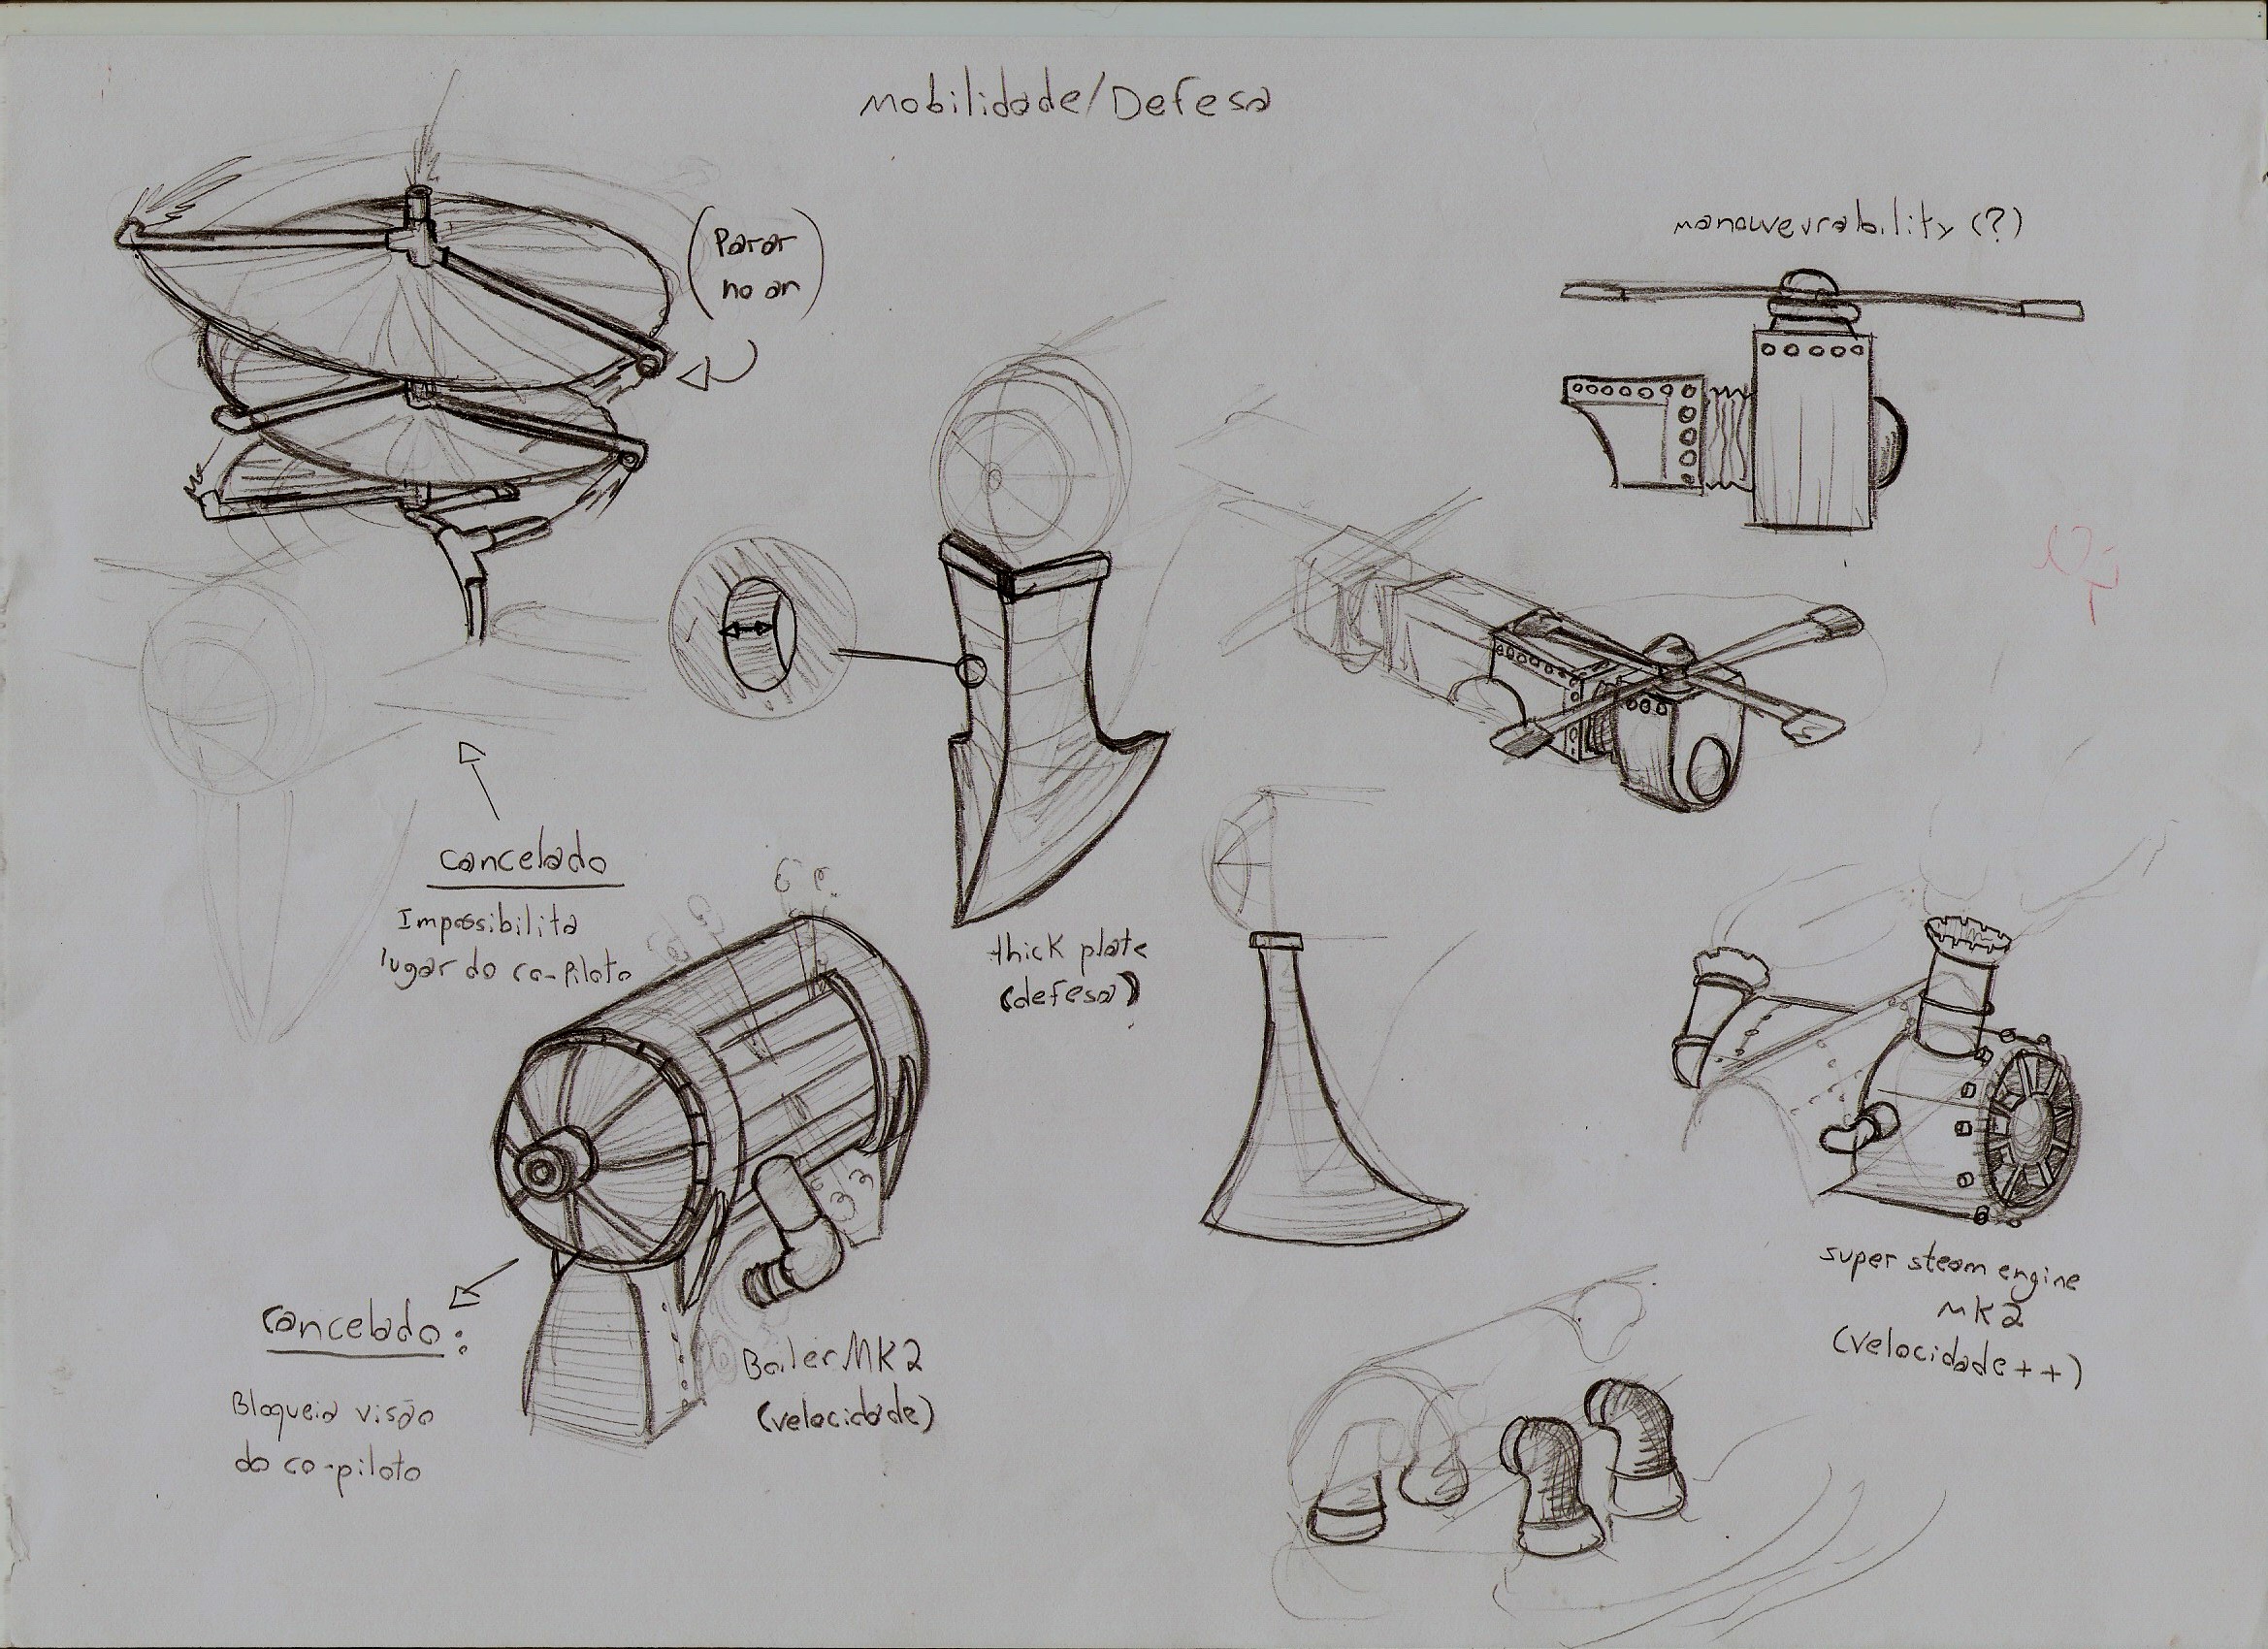 Mobilidade/Defesa
(Parar
no ar)
manouveurability (?)
cancelado
Impossibilita
lugar do co-piloto
thick plate
(defesa)
cancelado:
Bloqueia visão
do co-piloto
Boiler MK2
(velocidade)
super steam engine
MK2
(velocidade++)